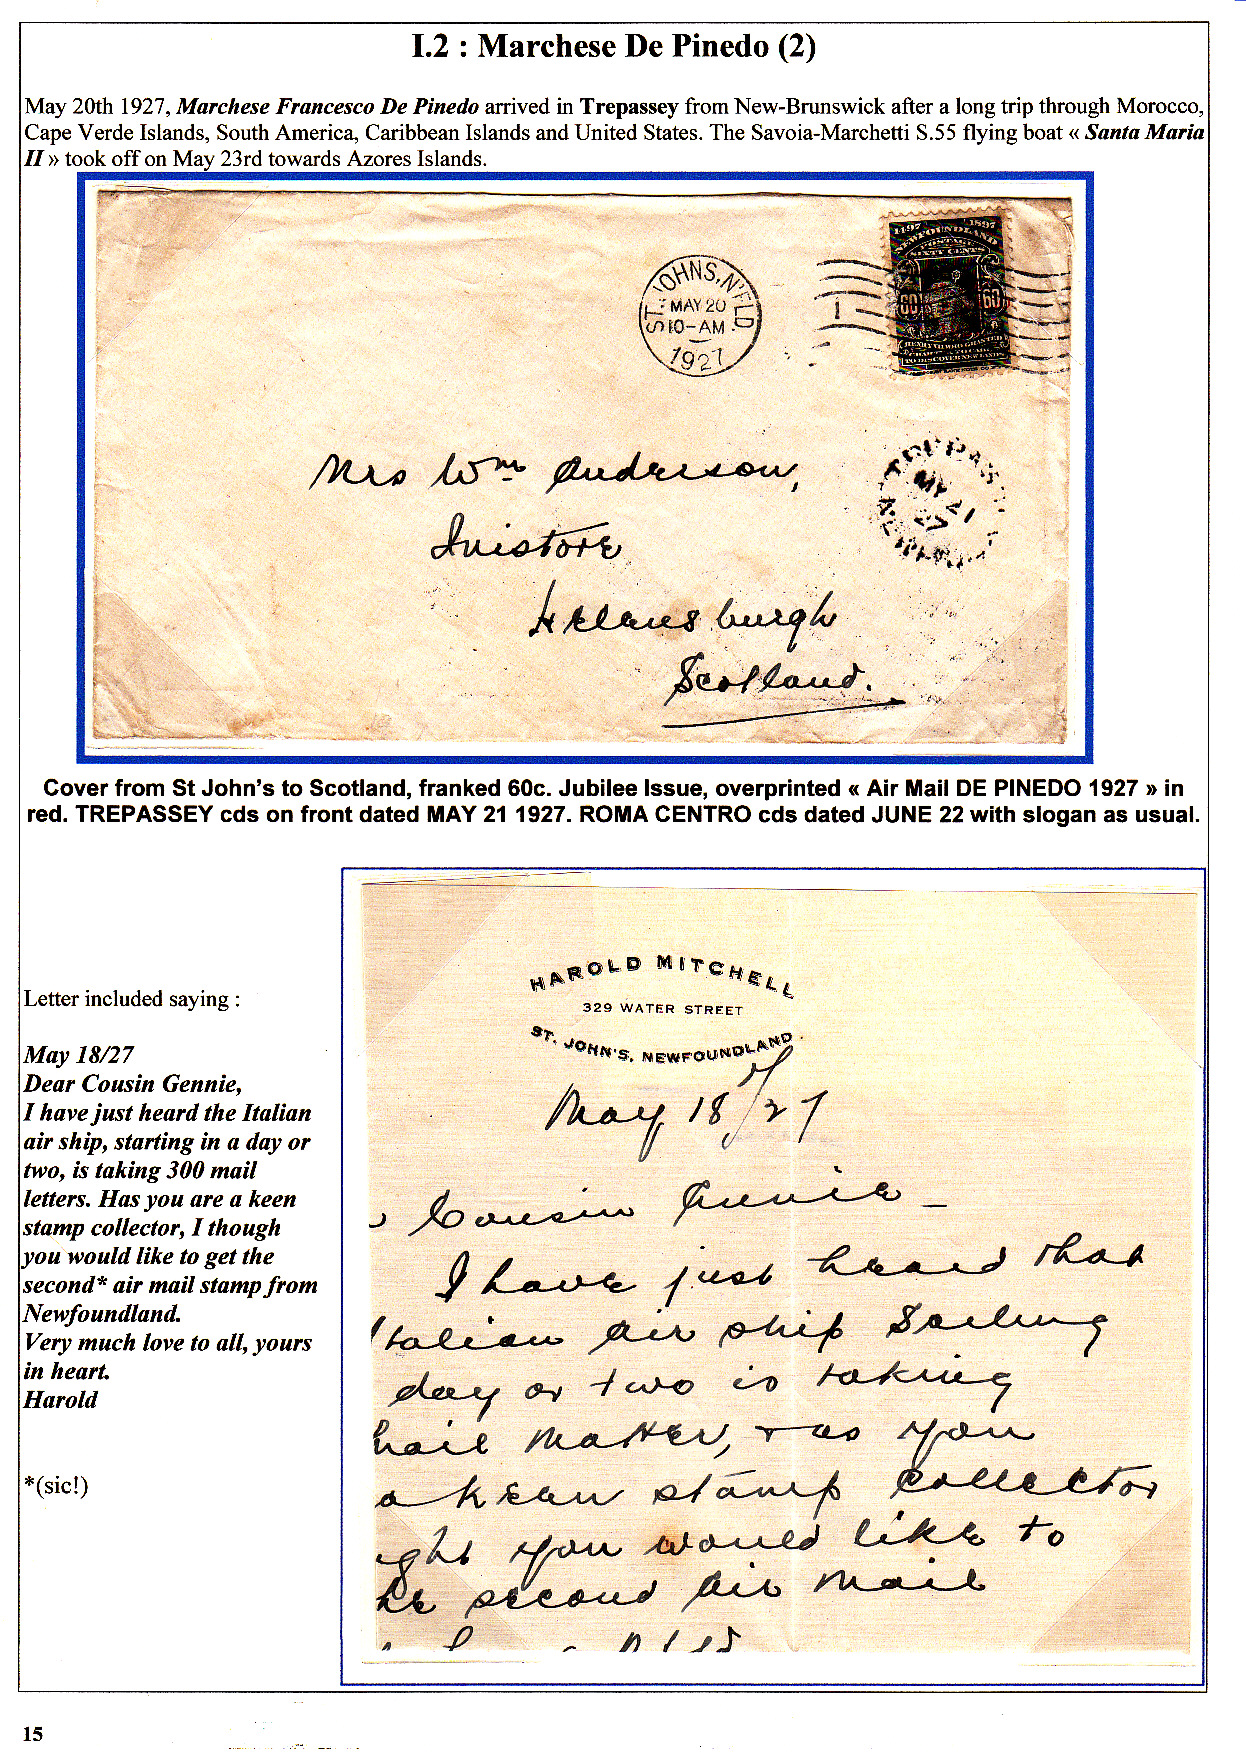 I.2 : Marchese De Pinedo (2)
May 20th 1927, Marchese Francesco De Pinedo arrived in Trepassey from New-Brunswick after a long trip through Morocco,
Cape Verde Islands, South America, Caribbean Islands and United States. The Savoia-Marchetti S.55 flying boat « Santa Maria
II » took off on May 23rd towards Azores Islands.
1497 1897
NEWFOUNDLAND
POSTAGE
SIXTY CENTS
60 60
ST. JOHNS, N'F'LD
MAY 20
10-AM
1927
1
Mrs Wm Anderson,
Inistore
Helensburgh
Scotland.
MY 21
27
Cover from St John's to Scotland, franked 60c. Jubilee Issue, overprinted « Air Mail DE PINEDO 1927 » in
red. TREPASSEY cds on front dated MAY 21 1927. ROMA CENTRO cds dated JUNE 22 with slogan as usual.
Letter included saying :
May 18/27
Dear Cousin Gennie,
I have just heard the Italian
air ship, starting in a day or
two, is taking 300 mail
letters. Has you are a keen
stamp collector, I though
you would like to get the
second* air mail stamp from
Newfoundland.
Very much love to all, yours
in heart.
Harold
*(sic!)
HAROLD MITCHELL
329 WATER STREET
ST. JOHN'S, NEWFOUNDLAND
May 18/27
Cousin Gennie -
I have just heard that
Italian air ship Sailing
day or two is taking
mail matter, & as you
a keen stamp collector
ght you would like to
he second Air Mail
15